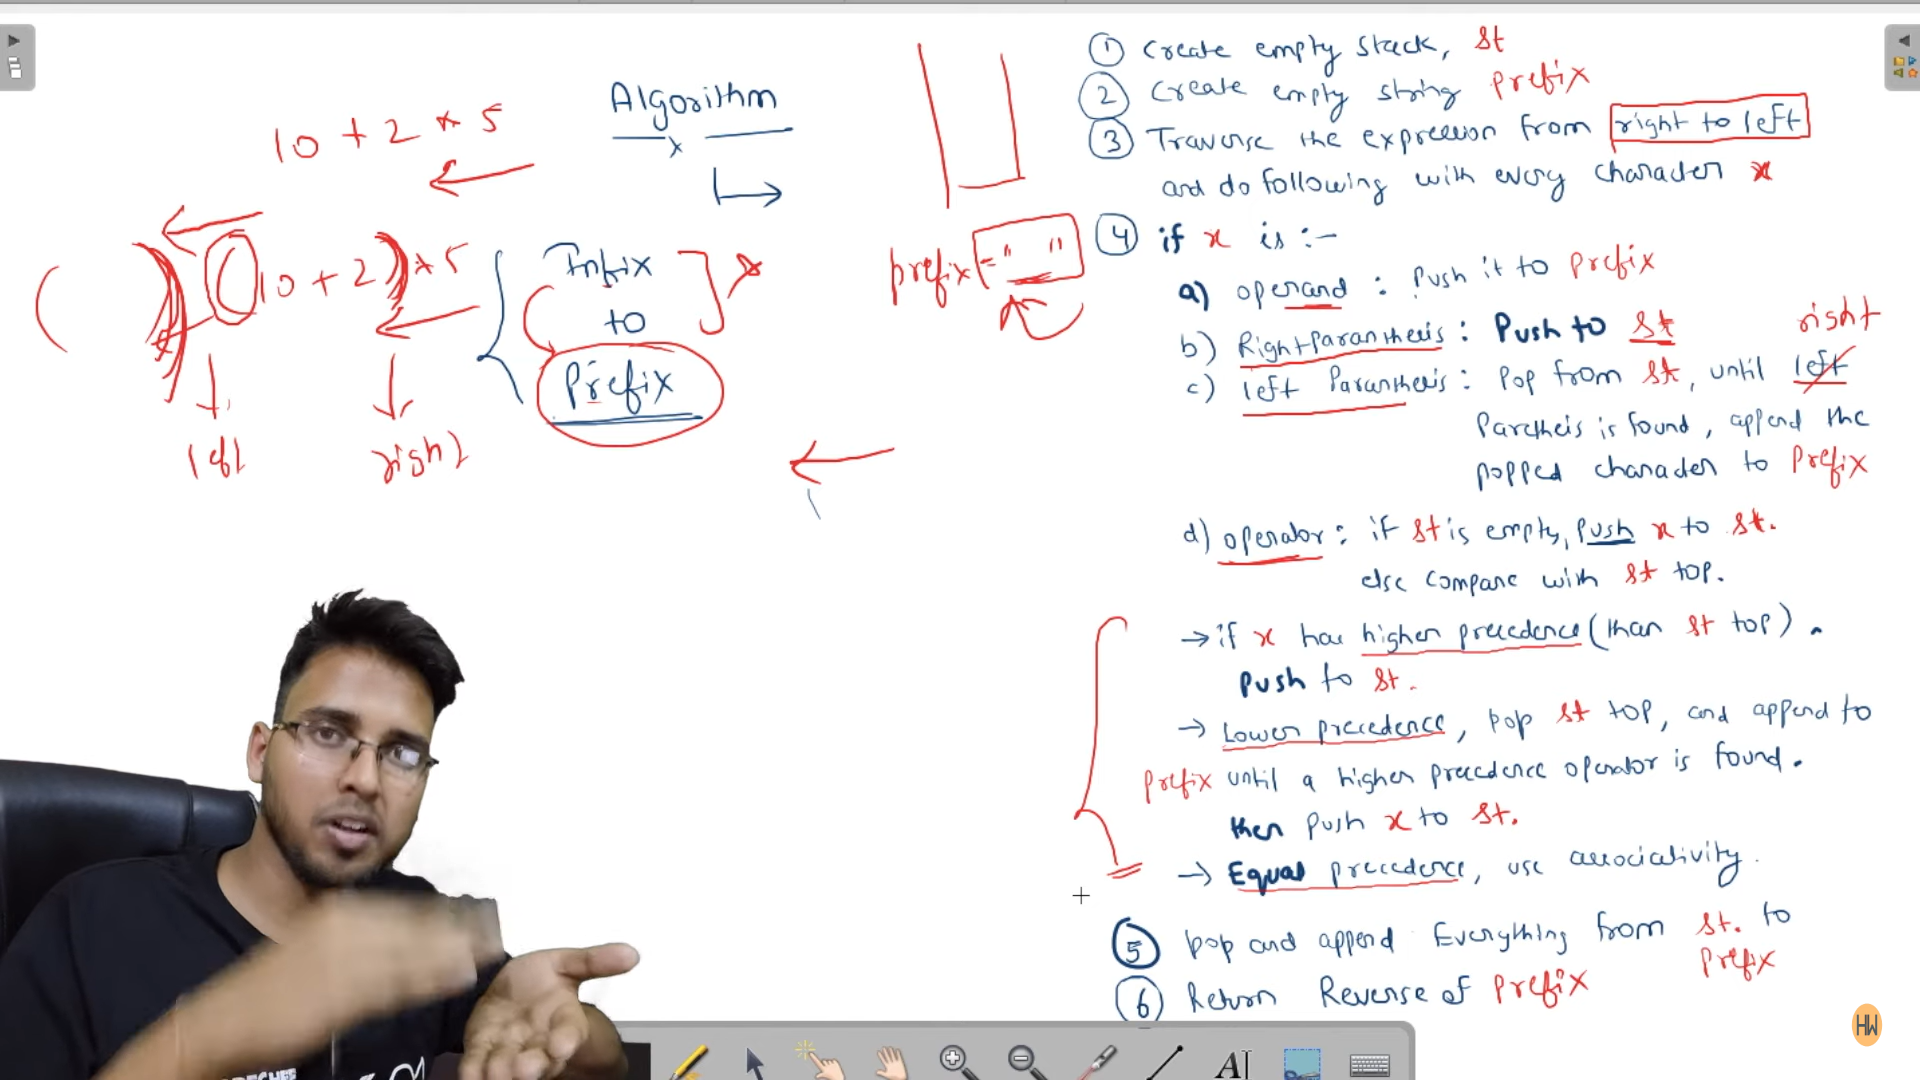 Algorithm
x
10 + 2 * 5
( ) (10 + 2) * 5
left
right
Infix
to
Prefix
prefix = " "
① Create empty stack, st
② Create empty string Prefix
③ Traverse the expression from right to left
and do following with every character x
④ if x is :-
a) operand : Push it to Prefix
b) Right Paranthesis : Push to st
right
c) left Paranthesis : Pop from st, until left
Paretheis is found, append the
popped character to Prefix
d) operator : if st is empty, push x to st.
else compare with st top.
→ if x has higher precedence (than st top).
Push to st.
→ Lower precedence, pop st top, and append to
Prefix until a higher precedence operator is found.
then push x to st.
→ Equal precedence, use associativity.
⑤ pop and append Everything from st. to
Prefix
⑥ Return Reverse of Prefix
A
HW